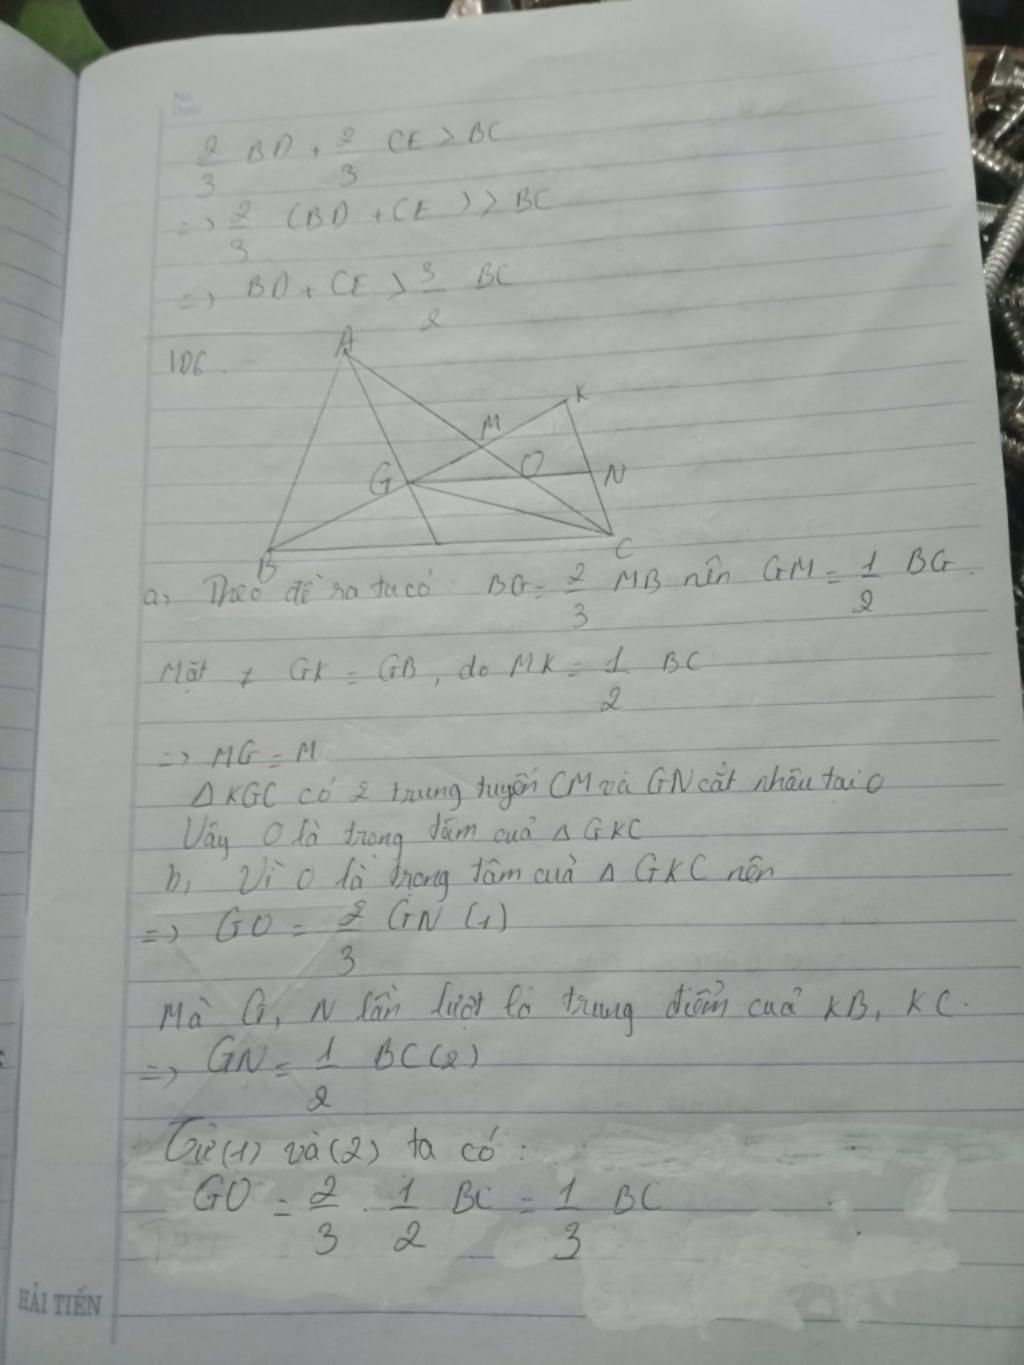 No.
Date
2/3 BD + 2/3 CE > BC
=> 2/3 (BD + CE) > BC
=> BD + CE > 3/2 BC
106.
A
K
M
G
O
N
B
C
a, Theo đề ra ta có: BG = 2/3 MB nên GM = 1/2 BG.
Mặt ≠ GK = GB, do MK = 1/2 BC
=> MG = M
Δ KGC có 2 trung tuyến CM và GN cắt nhau tai O
Vậy O là trọng tâm cuả Δ GKC
b, Vì O là trọng tâm cuả Δ GKC nên
=> GO = 2/3 GN (1)
Mà G, N lần lượt là trung điểm cuả KB, KC.
=> GN = 1/2 BC (2)
Từ (1) và (2) ta có:
GO = 2/3 . 1/2 BC = 1/3 BC
HẢI TIẾN